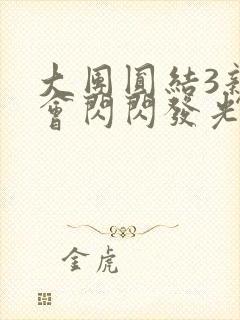 大團圓結3親
會閃閃發光
金虎